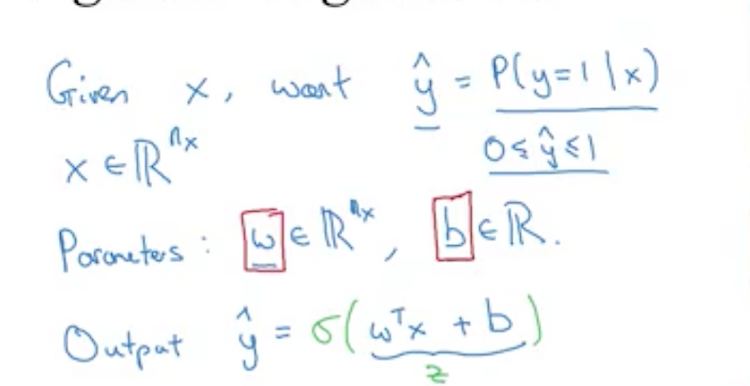 Given x, want ŷ = P(y=1|x)
x ∈ ℝⁿˣ 0 ≤ ŷ ≤ 1
Parameters : w ∈ ℝⁿˣ, b ∈ ℝ.
Output ŷ = σ(wᵀx + b)
z